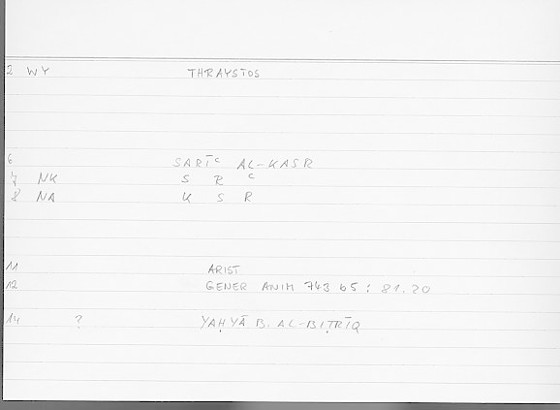 2 WY THRAYSTOS
6 SARĪᶜ AL-KASR
7 NK S R ᶜ
8 NA K S R
11 ARIST
12 GENER ANIM 743 b5 : 81.20
14 ? YAḤYĀ B. AL-BIṬRĪQ